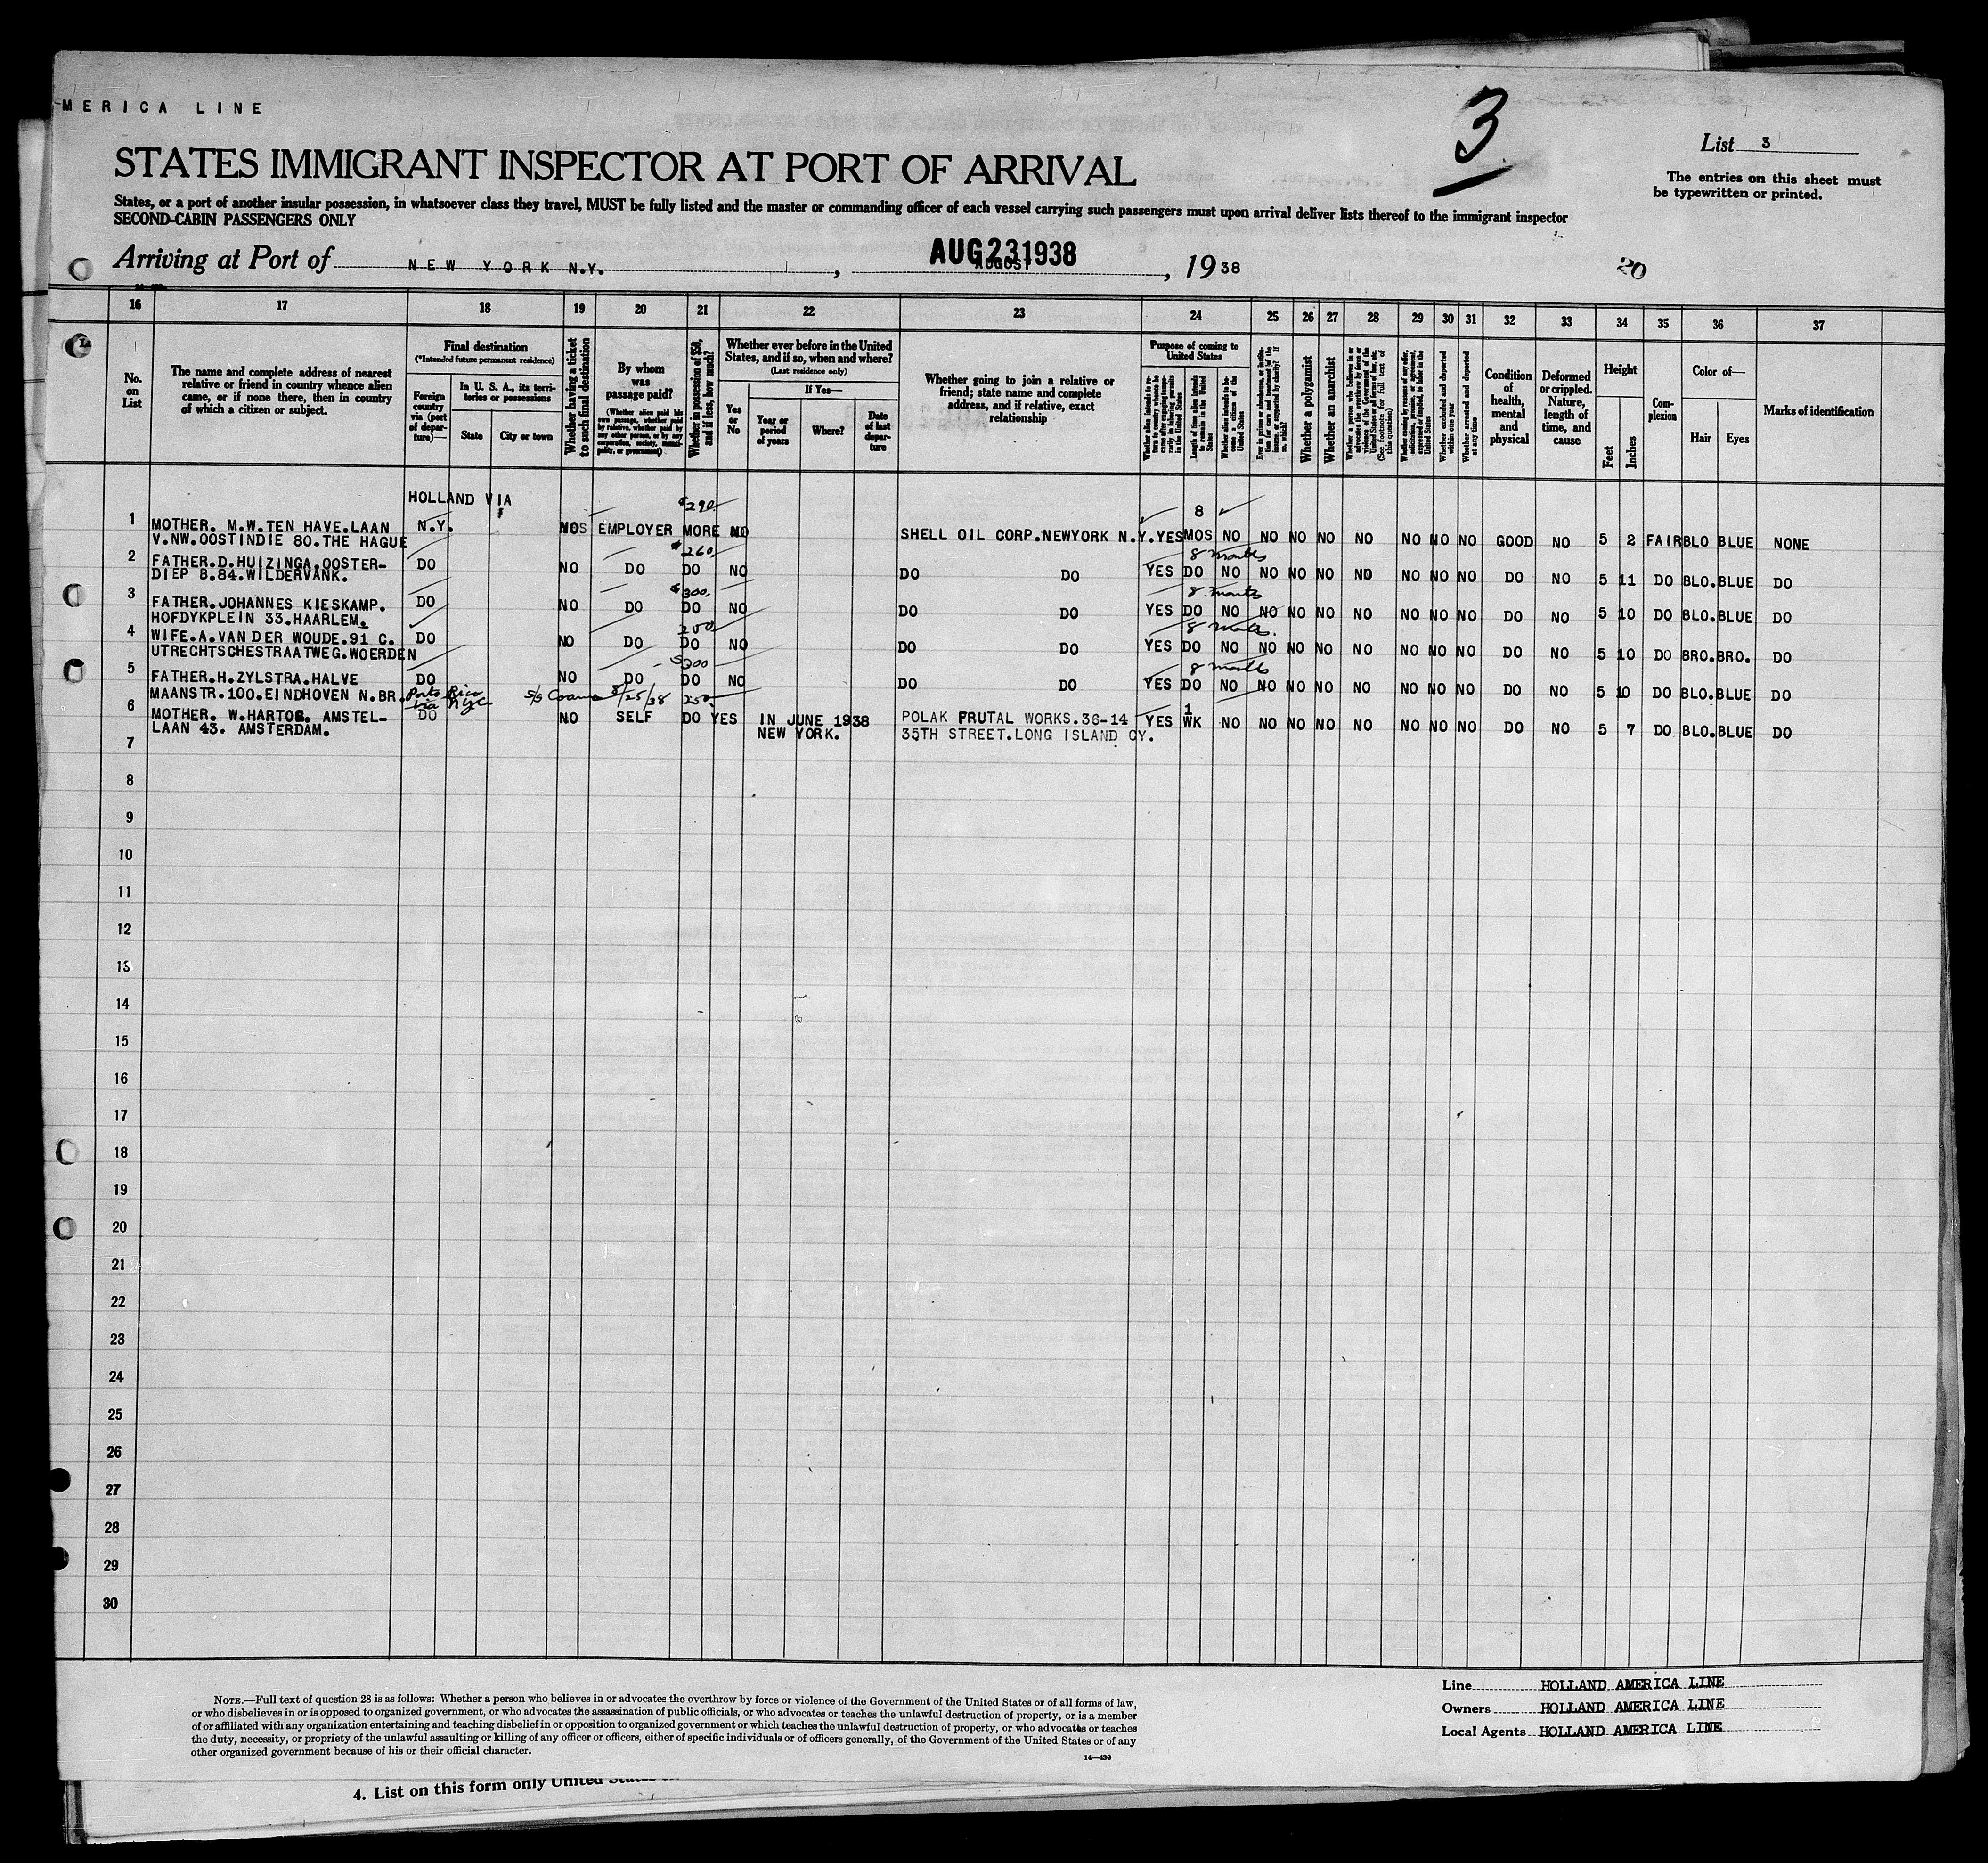 MERICA LINE
3
List 3
STATES IMMIGRANT INSPECTOR AT PORT OF ARRIVAL
The entries on this sheet must
be typewritten or printed.
States, or a port of another insular possession, in whatsoever class they travel, MUST be fully listed and the master or commanding officer of each vessel carrying such passengers must upon arrival deliver lists thereof to the immigrant inspector
SECOND-CABIN PASSENGERS ONLY
Arriving at Port of NEW YORK N.Y., AUG 23 1938 AUGUST, 1938
20
16 17 18 19 20 21 22 23 24 25 26 27 28 29 30 31 32 33 34 35 36 37
No. on List
The name and complete address of nearest relative or friend in country whence alien came, or if none there, then in country of which a citizen or subject.
Final destination
(*Intended future permanent residence)
Foreign country via (port of departure)—
In U. S. A., its territories or possessions
State
City or town
Whether having a ticket to such final destination
By whom was passage paid?
(Whether alien paid his own passage, whether paid by relative, whether paid by any other person, or by any corporation, society, municipality, or government)
Whether in possession of $50, and if less, how much?
Whether ever before in the United States, and if so, when and where?
(Last residence only)
Yes or No
If Yes—
Year or period of years
Where?
Date of last departure
Whether going to join a relative or friend; state name and complete address, and if relative, exact relationship
Purpose of coming to United States
Length of time alien intends to remain in the United States
Whether alien intends to become a citizen of the United States
Whether a polygamist
Whether an anarchist
(See footnote for full text of this question)
Whether excluded and deported within one year
Whether arrested and deported at any time
Condition of health, mental and physical
Deformed or crippled. Nature, length of time, and cause
Height
Feet
Inches
Complexion
Color of—
Hair
Eyes
Marks of identification
HOLLAND VIA
$290
8
1 MOTHER. M.W.TEN HAVE.LAAN N.Y. NOS EMPLOYER MORE NO SHELL OIL CORP.NEWYORK N.Y. YES MOS NO NO NO NO NO NO NO NO GOOD NO 5 2 FAIR BLO BLUE NONE
V.NW.OOSTINDIE 80.THE HAGUE
$260 8 months
2 FATHER.D.HUIZINGA.OOSTER- DO NO DO DO NO DO DO YES DO NO NO NO NO NO NO NO NO DO NO 5 11 DO BLO. BLUE DO
DIEP B.84.WILDERVANK.
$300 8 months
3 FATHER.JOHANNES KIESKAMP. DO NO DO DO NO DO DO YES DO NO NO NO NO NO NO NO NO DO NO 5 10 DO BLO. BLUE DO
HOFDYKPLEIN 33.HAARLEM.
250 8 months
4 WIFE.A.VAN DER WOUDE.91 C. DO NO DO DO NO DO DO YES DO NO NO NO NO NO NO NO NO DO NO 5 10 DO BRO. BRO. DO
UTRECHTSCHESTRAATWEG.WOERDEN
$300 8 months
5 FATHER.H.ZYLSTRA.HALVE DO NO DO DO NO DO DO YES DO NO NO NO NO NO NO NO NO DO NO 5 10 DO BLO. BLUE DO
MAANSTR.100.EINDHOVEN N.BR.
Porto Rico via nyc s/s Coamo 8/25/38 250
6 MOTHER. W.HARTOG. AMSTEL- DO NO SELF DO YES IN JUNE 1938 POLAK FRUTAL WORKS.36-14 YES 1 WK NO NO NO NO NO NO NO NO DO NO 5 7 DO BLO. BLUE DO
LAAN 43. AMSTERDAM. NEW YORK. 35TH STREET.LONG ISLAND CY.
7
8
9
10
11
12
13
14
15
16
17
18
19
20
21
22
23
24
25
26
27
28
29
30
NOTE.—Full text of question 28 is as follows: Whether a person who believes in or advocates the overthrow by force or violence of the Government of the United States or of all forms of law,
or who disbelieves in or is opposed to organized government, or who advocates the assassination of public officials, or who advocates or teaches the unlawful destruction of property, or is a member
of or affiliated with any organization entertaining and teaching disbelief in or opposition to organized government or which teaches the unlawful destruction of property, or who advocates or teaches
the duty, necessity, or propriety of the unlawful assaulting or killing of any officer or officers, either of specific individuals or of officers generally, of the Government of the United States or of any
other organized government because of his or their official character.
14—430
Line HOLLAND AMERICA LINE
Owners HOLLAND AMERICA LINE
Local Agents HOLLAND AMERICA LINE
4. List on this form only United States